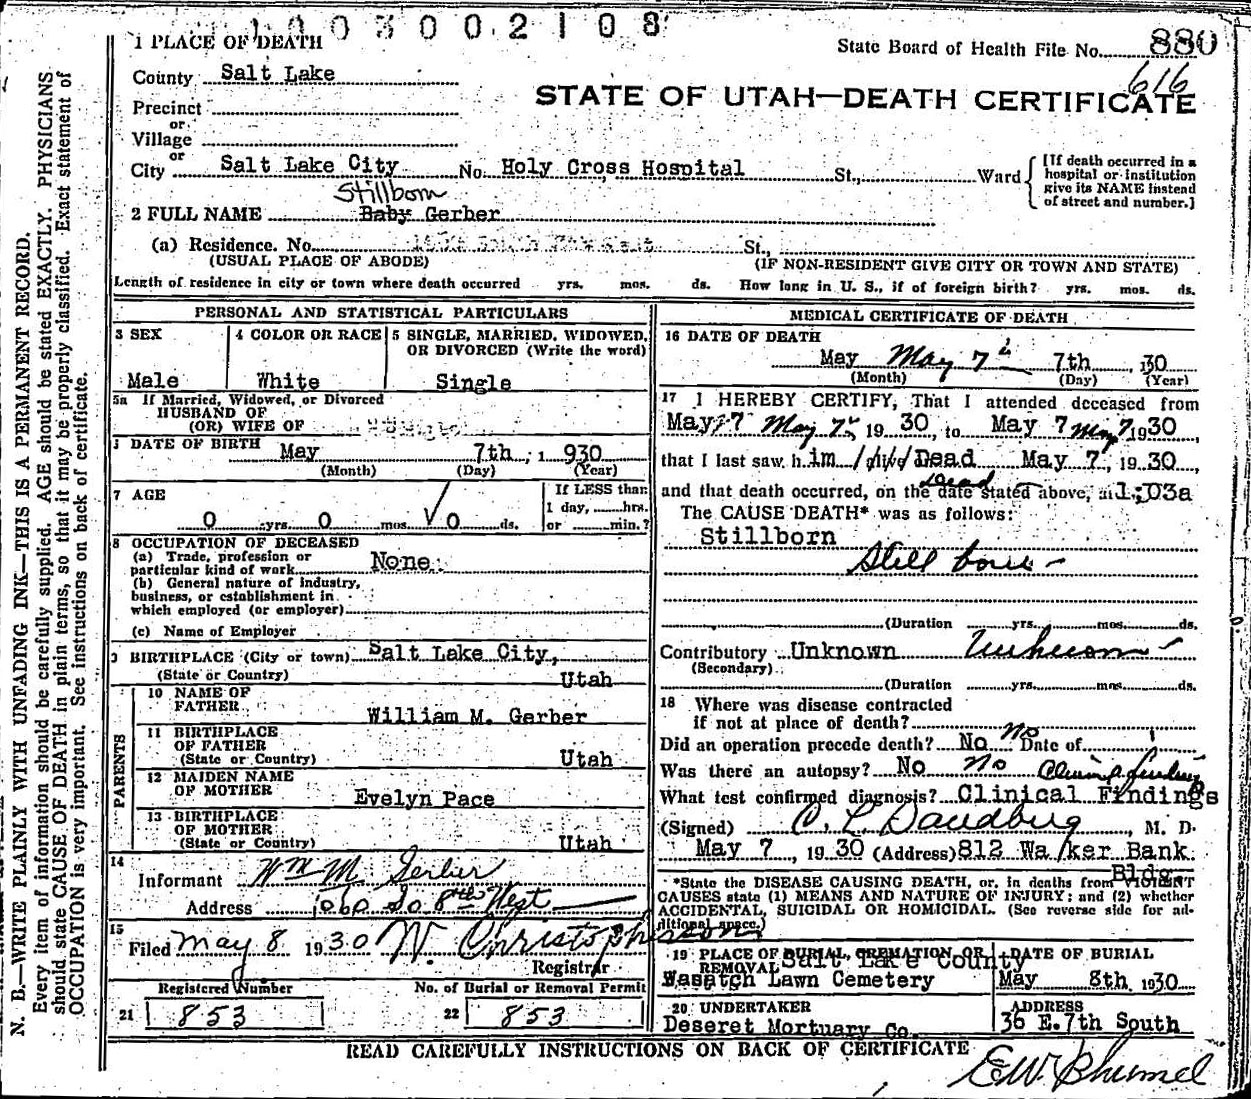 1003002108
1 PLACE OF DEATH
State Board of Health File No. 880
616
County Salt Lake
STATE OF UTAH—DEATH CERTIFICATE
Precinct
or
Village
or
City Salt Lake City No. Holy Cross Hospital St., Ward
[If death occurred in a hospital or institution give its NAME instead of street and number.]
Stillborn
2 FULL NAME Baby Gerber
(a) Residence. No. St.,
(USUAL PLACE OF ABODE) (IF NON-RESIDENT GIVE CITY OR TOWN AND STATE)
Length of residence in city or town where death occurred yrs. mos. ds. How long in U. S., if of foreign birth? yrs. mos. ds.
PERSONAL AND STATISTICAL PARTICULARS
3 SEX 4 COLOR OR RACE 5 SINGLE, MARRIED, WIDOWED, OR DIVORCED (Write the word)
Male White Single
5a If Married, Widowed, or Divorced
HUSBAND OF
(OR) WIFE OF
DATE OF BIRTH May 7th, 1930
(Month) (Day) (Year)
7 AGE If LESS than
1 day, hrs.
0 yrs. 0 mos. 0 ds. or min.?
8 OCCUPATION OF DECEASED
(a) Trade, profession or
particular kind of work None
(b) General nature of industry,
business, or establishment in
which employed (or employer)
(c) Name of Employer
BIRTHPLACE (City or town) Salt Lake City,
(State or Country) Utah
PARENTS
10 NAME OF
FATHER William M. Gerber
11 BIRTHPLACE
OF FATHER
(State or Country) Utah
12 MAIDEN NAME
OF MOTHER Evelyn Pace
13 BIRTHPLACE
OF MOTHER
(State or Country) Utah
14
Informant Wm M. Gerber
Address 1060 So 8th West
15
Filed May 8 1930 W. Christopherson
Registrar
Registered Number No. of Burial or Removal Permit
21 853 22 853
MEDICAL CERTIFICATE OF DEATH
16 DATE OF DEATH
May May 7th 7th, 30
(Month) (Day) (Year)
17 I HEREBY CERTIFY, That I attended deceased from
May 7 May 7th 19 30, to May 7 May 7 1930,
that I last saw him alive Dead May 7, 1930,
Dead
and that death occurred, on the date stated above, at 1:03a
The CAUSE DEATH* was as follows:
Stillborn
Still born
(Duration yrs. mos. ds.
Contributory Unknown Unknown
(Secondary)
(Duration yrs. mos. ds.
18 Where was disease contracted
if not at place of death?
Did an operation precede death? No No Date of
Was there an autopsy? No No Clinical findings
What test confirmed diagnosis? Clinical Findings
(Signed) M. D.
May 7, 1930 (Address) 812 Walker Bank
Bldg.
*State the DISEASE CAUSING DEATH, or, in deaths from VIOLENT
CAUSES state (1) MEANS AND NATURE OF INJURY; and (2) whether
ACCIDENTAL, SUICIDAL OR HOMICIDAL. (See reverse side for ad-
ditional space.)
19 PLACE OF BURIAL, CREMATION, OR DATE OF BURIAL
REMOVAL Salt Lake County
Wasatch Lawn Cemetery May 8th, 1930
20 UNDERTAKER ADDRESS
Deseret Mortuary Co. 36 E. 7th South
READ CAREFULLY INSTRUCTIONS ON BACK OF CERTIFICATE
N. B.—WRITE PLAINLY WITH UNFADING INK—THIS IS A PERMANENT RECORD.
Every item of information should be carefully supplied. AGE should be stated EXACTLY. PHYSICIANS
should state CAUSE OF DEATH in plain terms, so that it may be properly classified. Exact statement of
OCCUPATION is very important. See instructions on back of certificate.